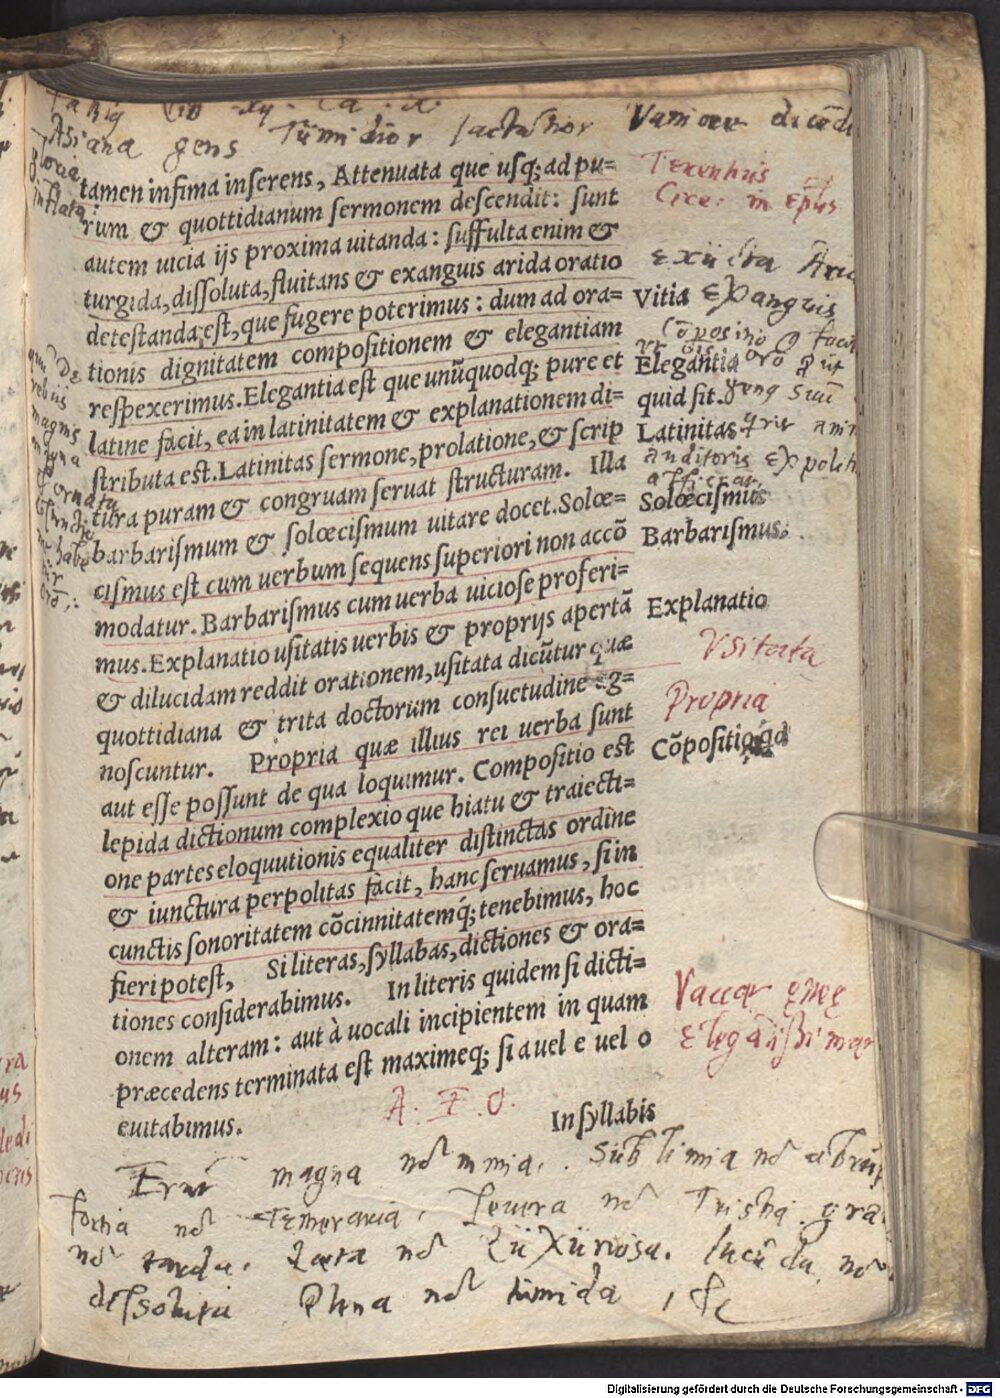 Asiana gens Tumidior Iactatior Vanior
tamen infima inserens, Attenuata que usq; ad pu=
rum & quottidianum sermonem descendit: sunt
autem uicia ijs proxima uitanda: suffulta enim &
turgida, dissoluta, fluitans & exanguis arida oratio
detestanda est, que fugere poterimus: dum ad ora=
tionis dignitatem compositionem & elegantiam
respexerimus. Elegantia est que unũquodq; pure et
latine facit, ea in latinitatem & explanationem di=
stributa est. Latinitas sermone, prolatione, & scrip
tura puram & congruam seruat structuram. Illa
barbarismum & solœcismum uitare docet. Solœ=
cismus est cum uerbum sequens superiori non accõ
modatur. Barbarismus cum uerba uiciose proferi=
mus. Explanatio usitatis uerbis & proprijs apertã
& dilucidam reddit orationem, usitata dicũtur quæ
quottidiana & trita doctorum consuetudine cog=
noscuntur. Propria quæ illius rei uerba sunt
aut esse possunt de qua loquimur. Compositio est
lepida dictionum complexio que hiatu & traiecti=
one partes eloquutionis equaliter distinctas ordine
& iunctura perpolitas facit, hanc seruamus, si in
cunctis sonoritatem cõcinnitatemq́; tenebimus, hoc
fieri potest, Si literas, syllabas, dictiones & ora=
tiones considerabimus. In literis quidem si dicti=
onem alteram: aut à uocali incipientem in quam
præcedens terminata est maximeq; si a uel e uel o
euitabimus.
A. E. O.
In syllabis
Terentius
Cice: in
Vitia Exanguis
Elegantia
quid sit.
Latinitas
auditoris
Solœcismus
Barbarismus.
Explanatio
Vsitata
Propria
Cõpositio qd
Vaccae
Elegãtissimae
magna nõ Sublimia nõ
nõ Temeraria, Seuera nõ Tristia
nõ tarda. Laeta nõ Luxuriosa. Iucũda nõ
dissoluta Plena nõ tumida, &c
Digitalisierung gefördert durch die Deutsche Forschungsgemeinschaft - DFG